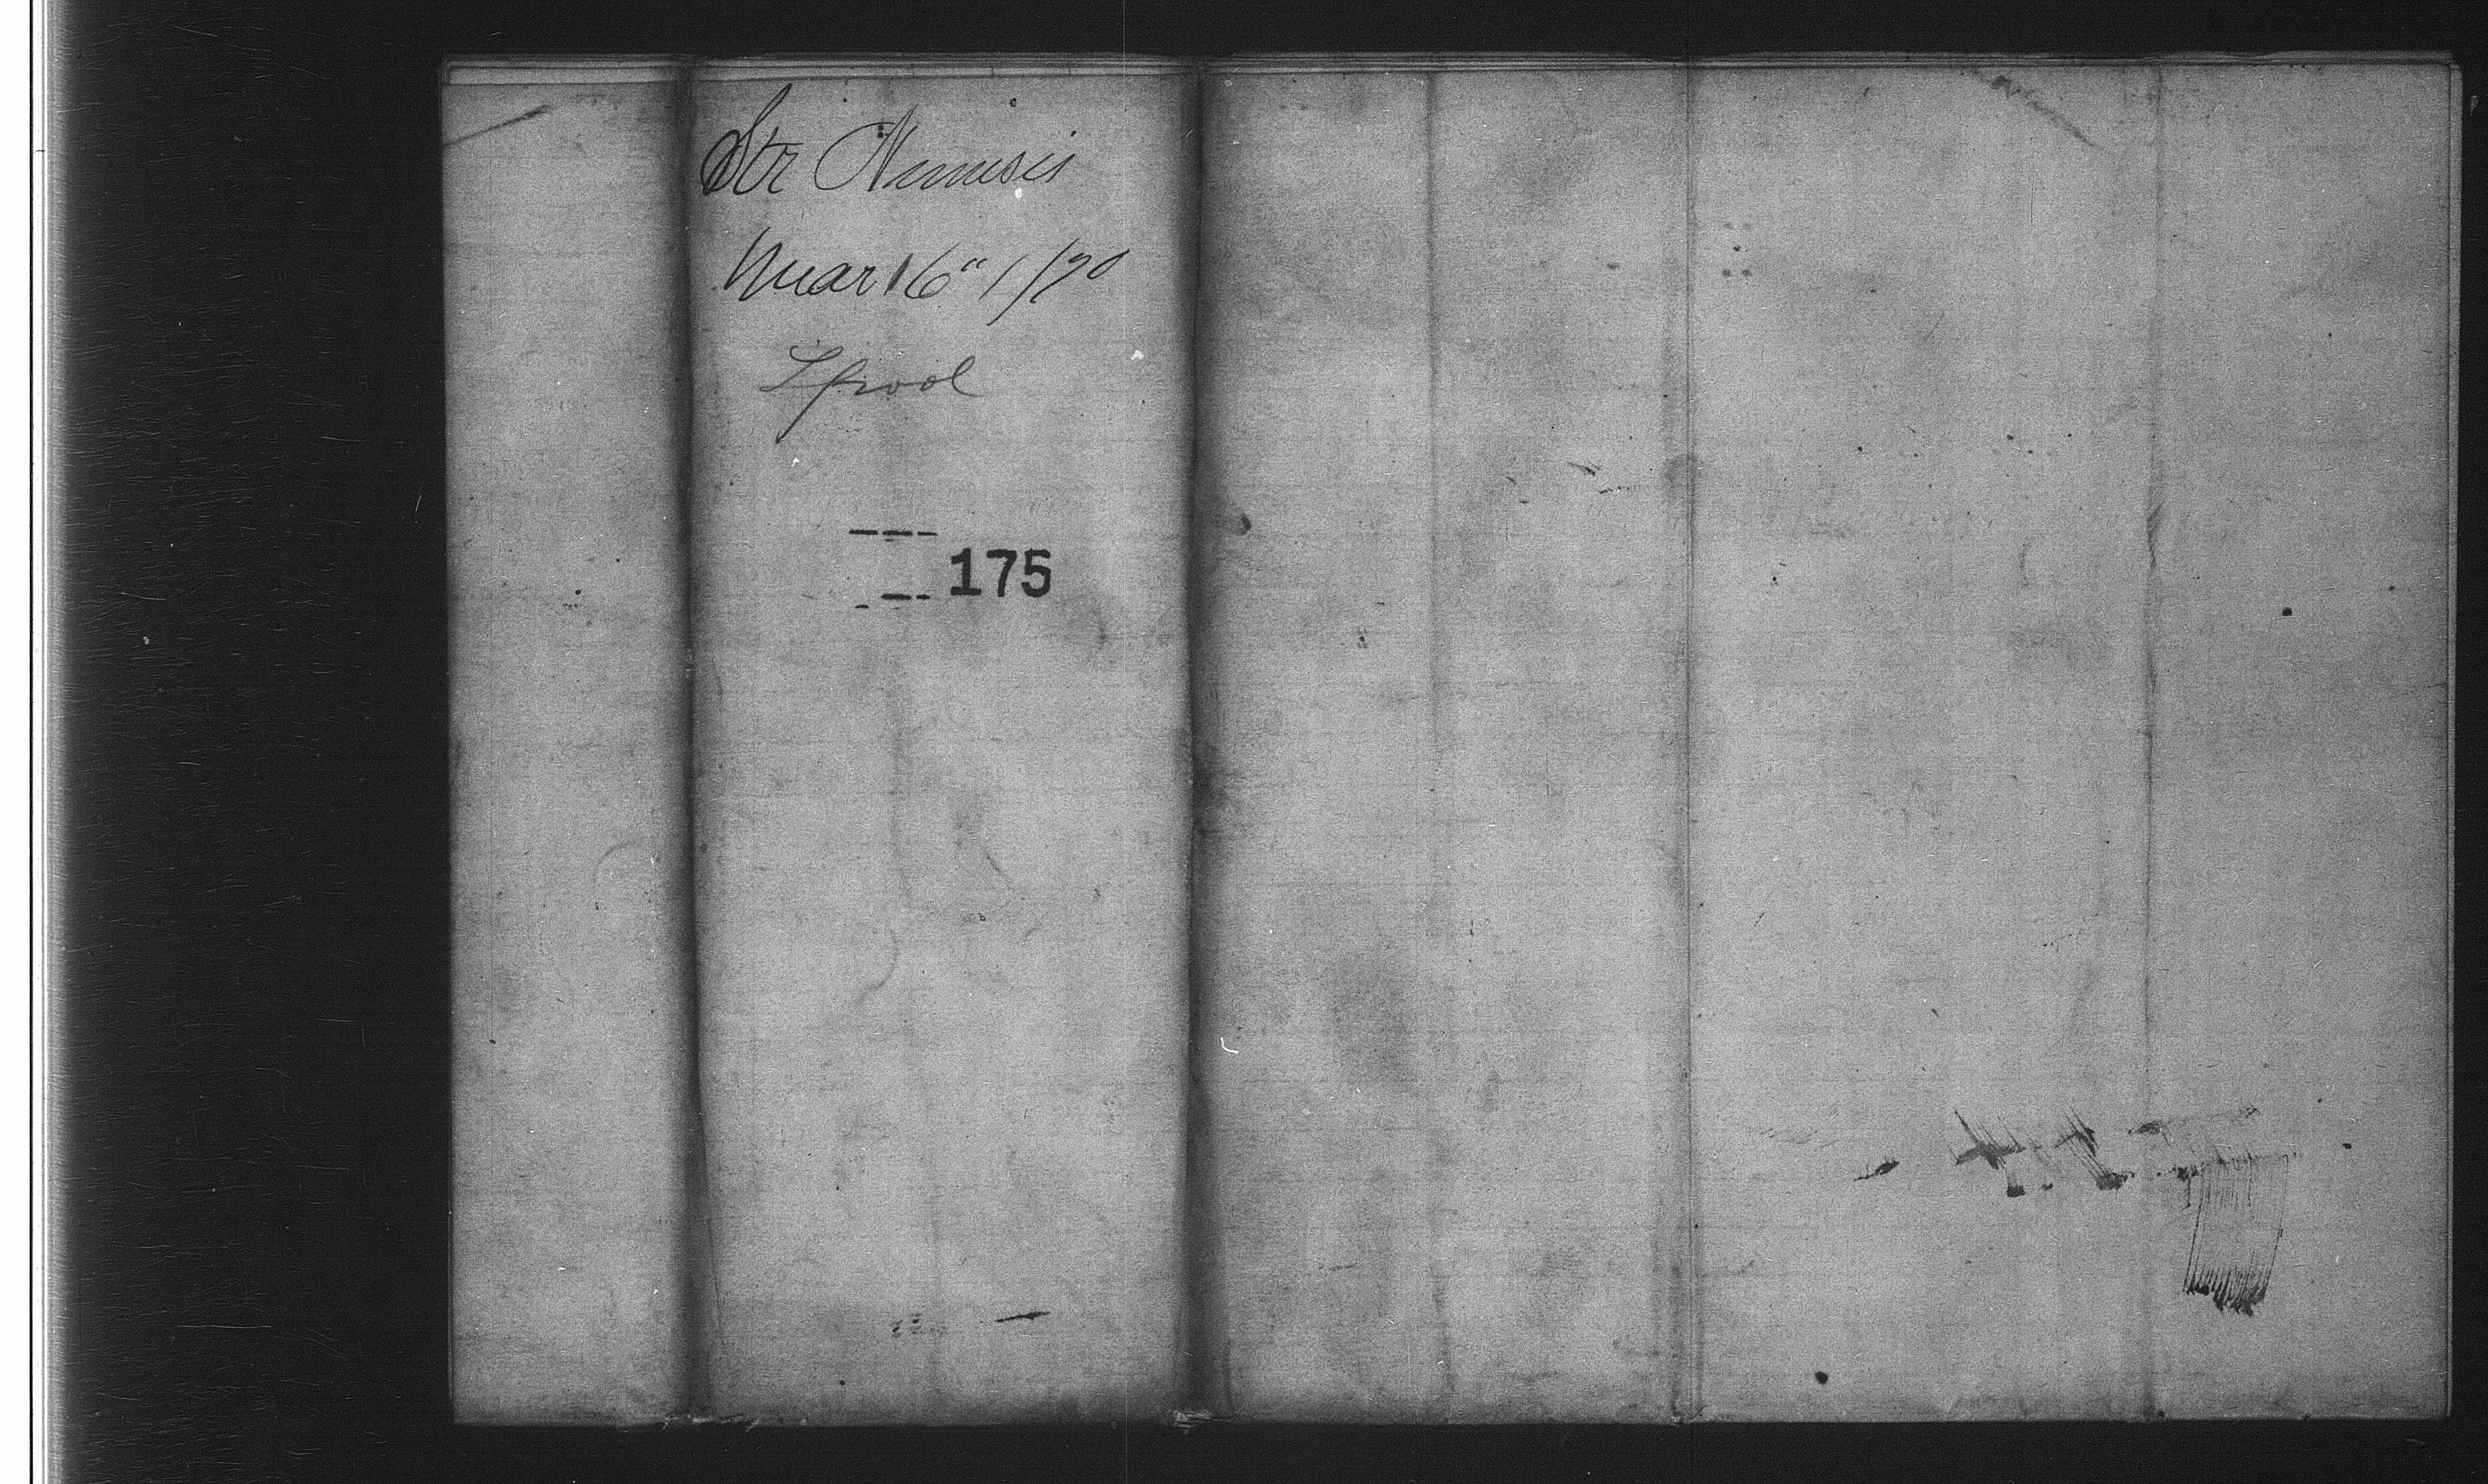 Str Nemesis
Mar 16" 1/70
Lpool
175